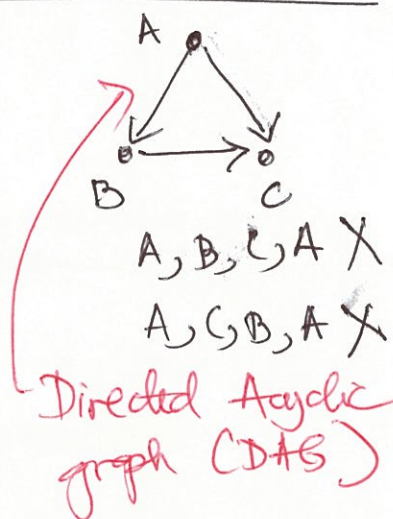 A
B
C
A, B, C, A X
A, C, B, A X
Directed Acyclic
graph (DAG)